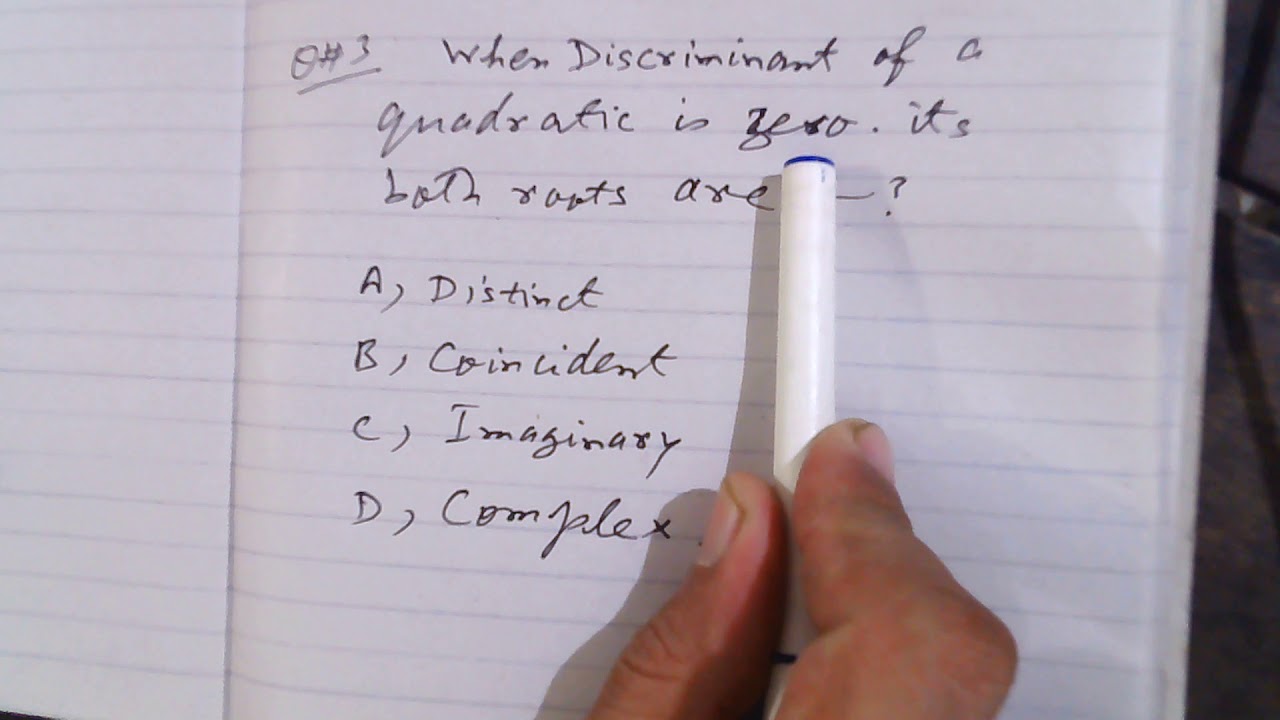 Q#3 When Discriminant of a
quadratic is zero. its
both roots are —?
A, Distinct
B, Coincident
C, Imaginary
D, Complex.